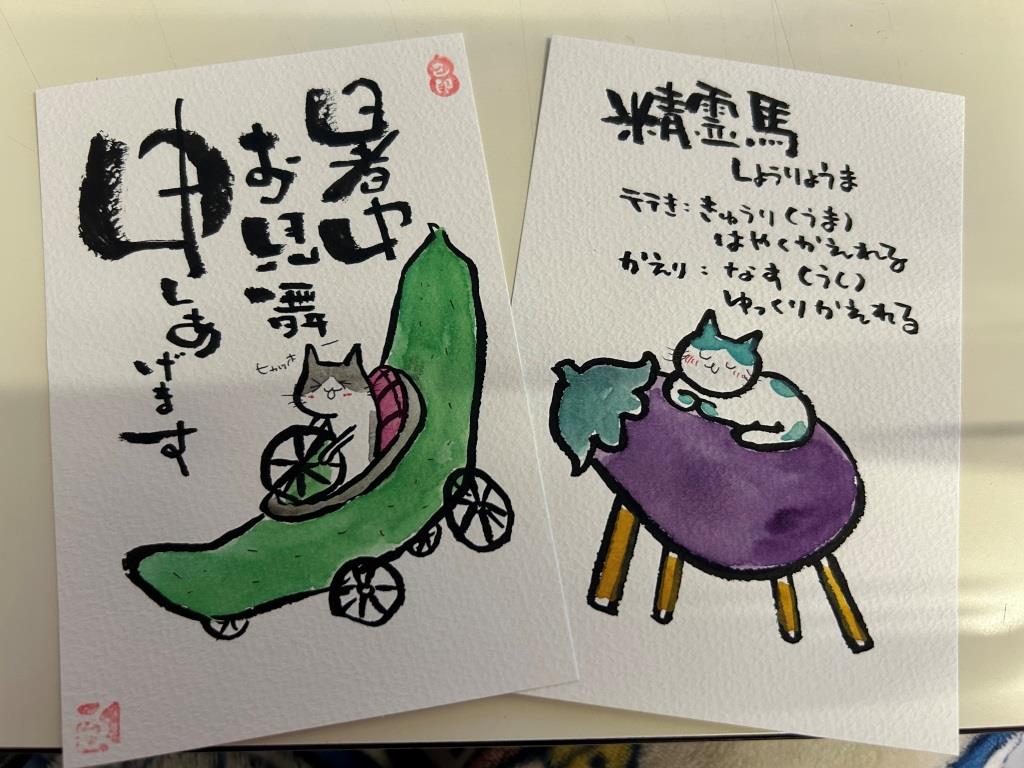 暑中
お見舞
申しあげます
精霊馬
しょうりょうま
行き：きゅうり(うま)
はやくかえれる
かえり：なす(うし)
ゆっくりかえれる